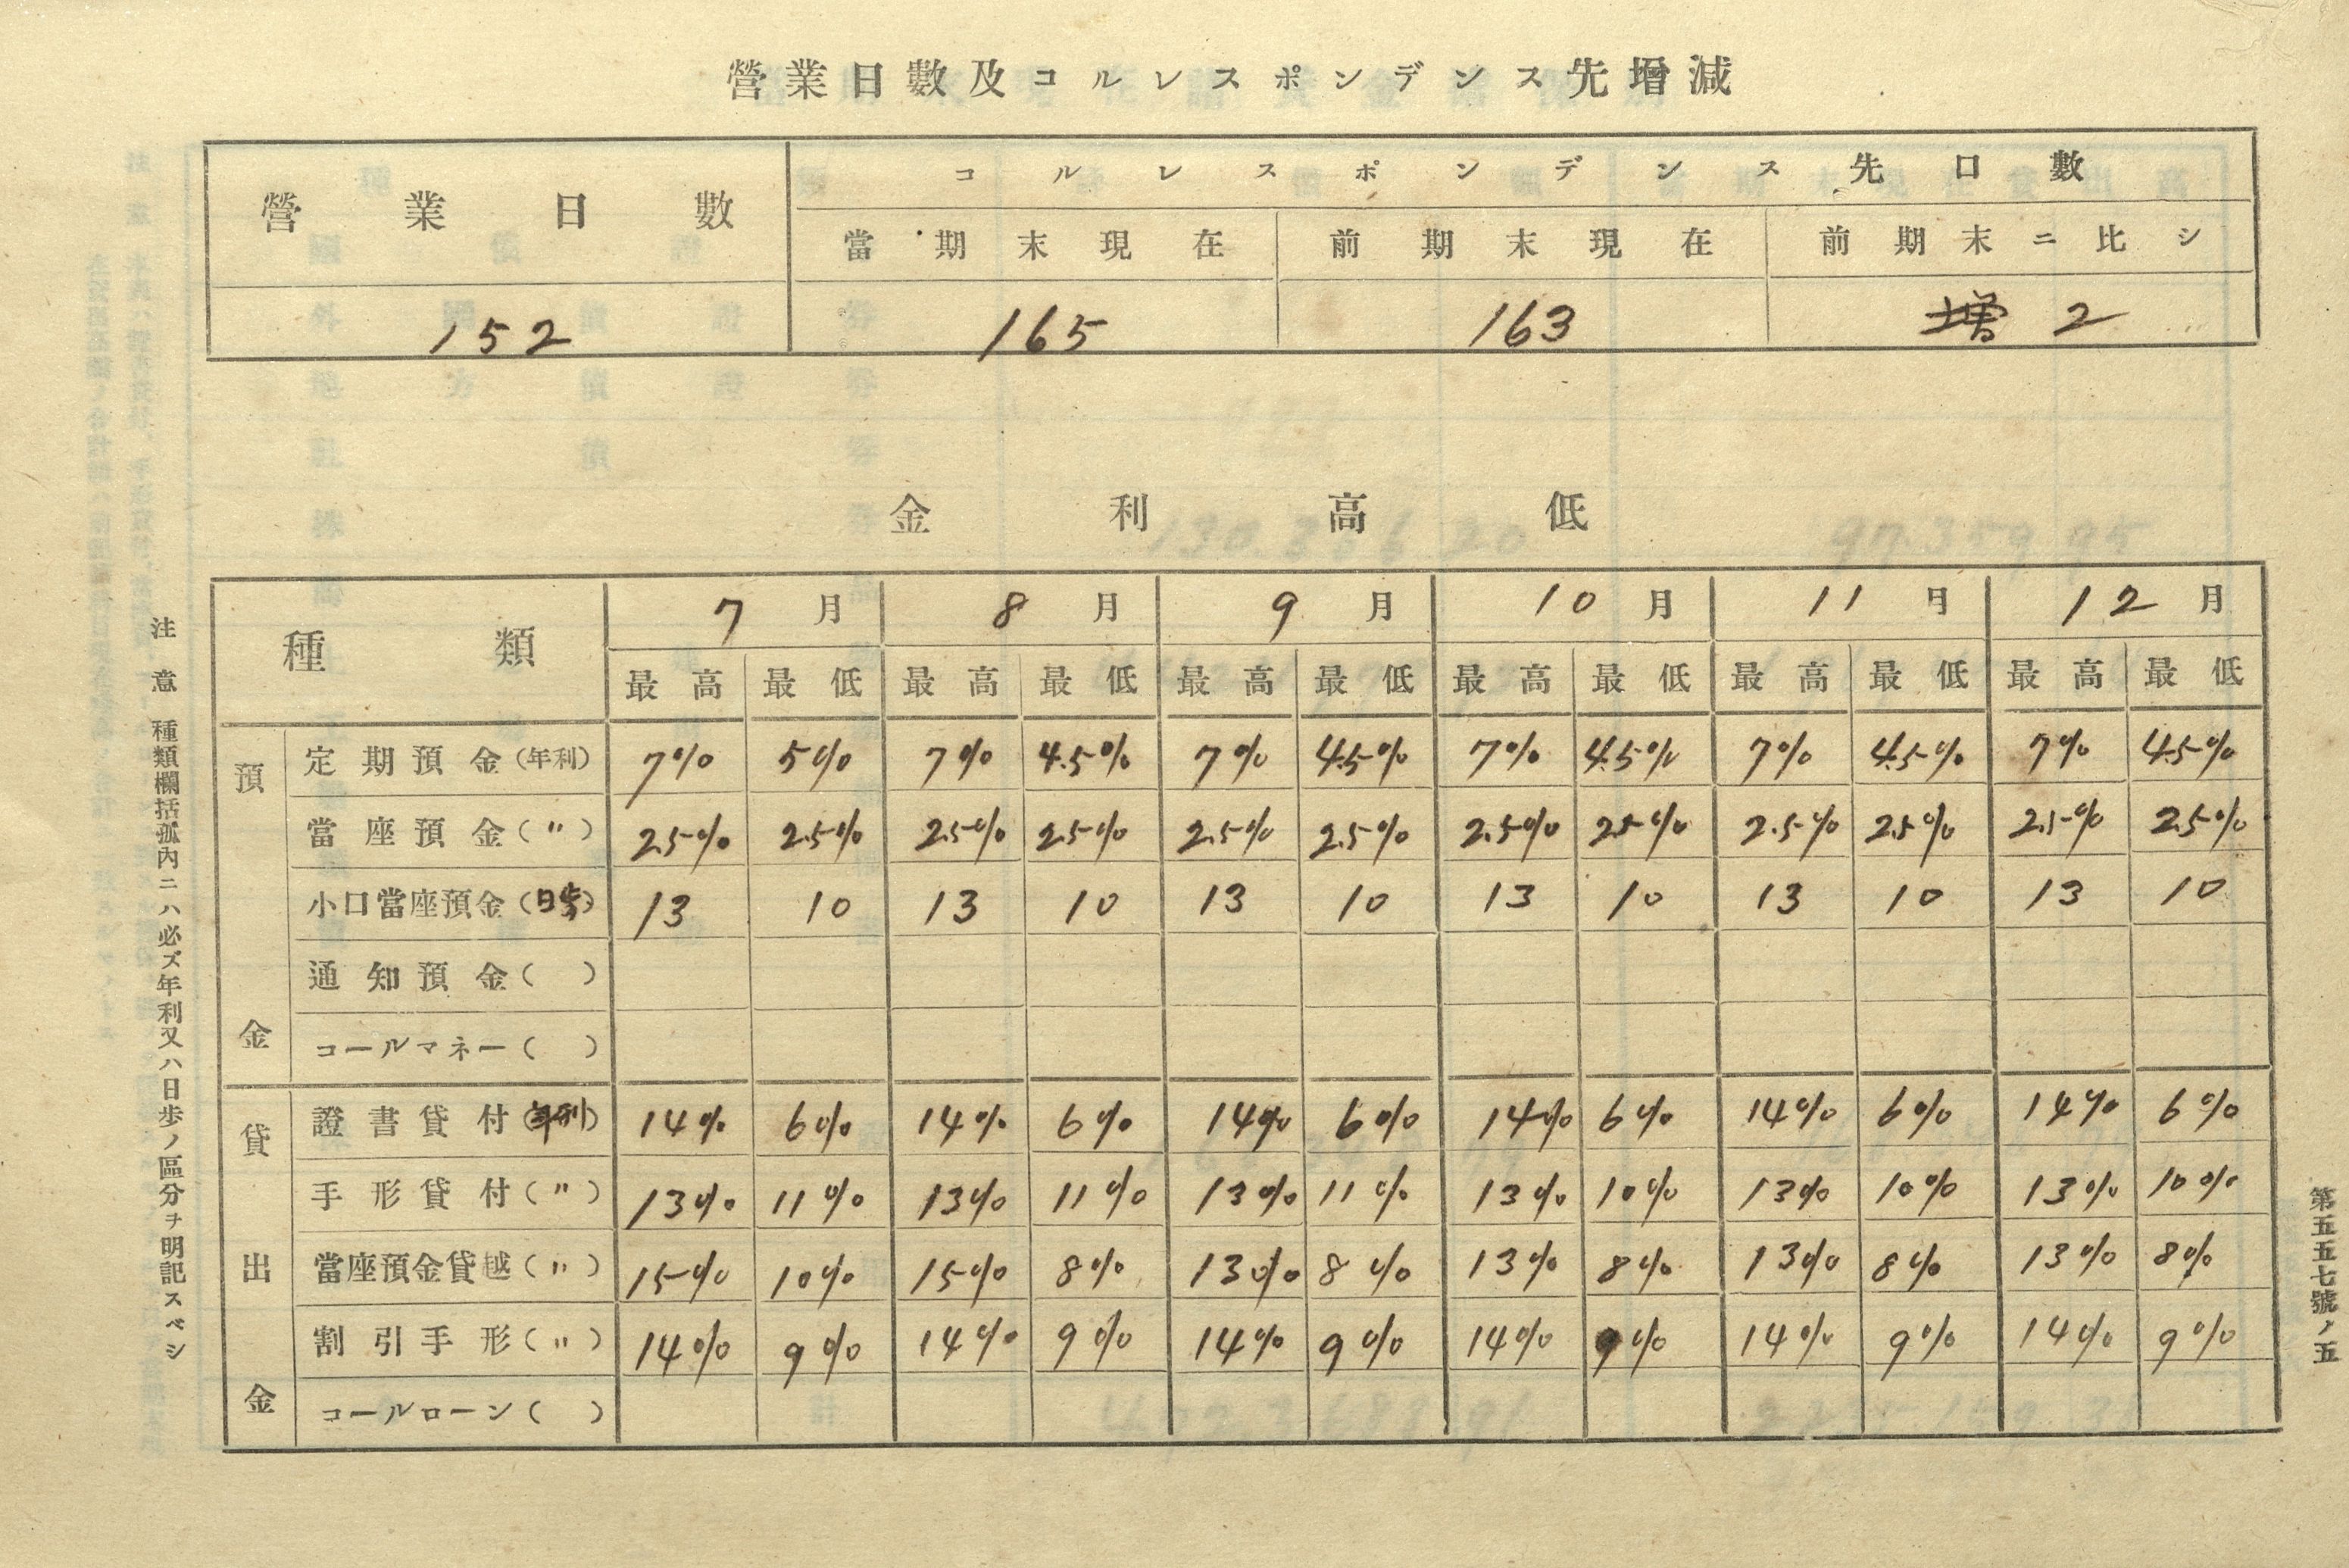 營業日數及コルレスポンデンス先增減
營業日數 コルレスポンデンス先口數
當期末現在 前期末現在 前期末ニ比シ
152 165 163 增 2
金利高低
種類 7月 8月 9月 10月 11月 12月
最高 最低 最高 最低 最高 最低 最高 最低 最高 最低 最高 最低
預金
定期預金(年利) 7% 5% 7% 4.5% 7% 4.5% 7% 4.5% 7% 4.5% 7% 4.5%
當座預金(〃) 2.5% 2.5% 2.5% 2.5% 2.5% 2.5% 2.5% 2.5% 2.5% 2.5% 2.5% 2.5%
小口當座預金(日歩) 13 10 13 10 13 10 13 10 13 10 13 10
通知預金( )
コールマネー( )
貸出金
證書貸付(年利) 14% 6% 14% 6% 14% 6% 14% 6% 14% 6% 14% 6%
手形貸付(〃) 13% 11% 13% 11% 13% 11% 13% 10% 13% 10% 13% 10%
當座預金貸越(〃) 15% 10% 15% 8% 13% 8% 13% 8% 13% 8% 13% 8%
割引手形(〃) 14% 9% 14% 9% 14% 9% 14% 9% 14% 9% 14% 9%
コールローン( )
注意 種類欄括孤內ニハ必ズ年利又ハ日歩ノ區分ヲ明記スベシ
第五五七號ノ五